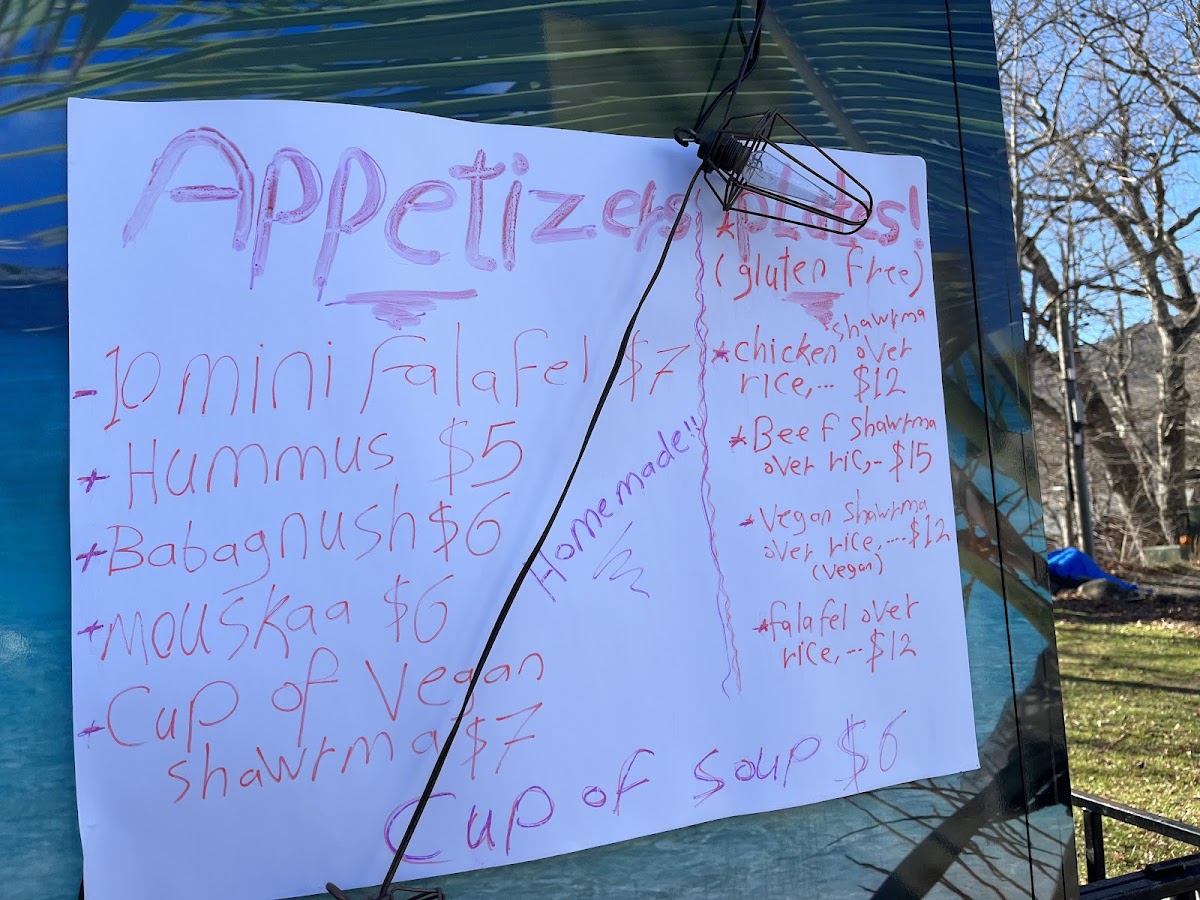 Appetizers
- 10 mini Falafel $7
+ Hummus $5
+ Babagnush $6
+ Mouskaa $6
+ Cup of Vegan
shawrma $7
Homemade!!
* plates!
(gluten free)
* chicken shawrma over
rice,... $12
* Beef shawrma
over ric,- $15
* Vegan shawrma
over rice,.... $12
(Vegan)
* falafel over
rice,... $12
Cup of soup $6